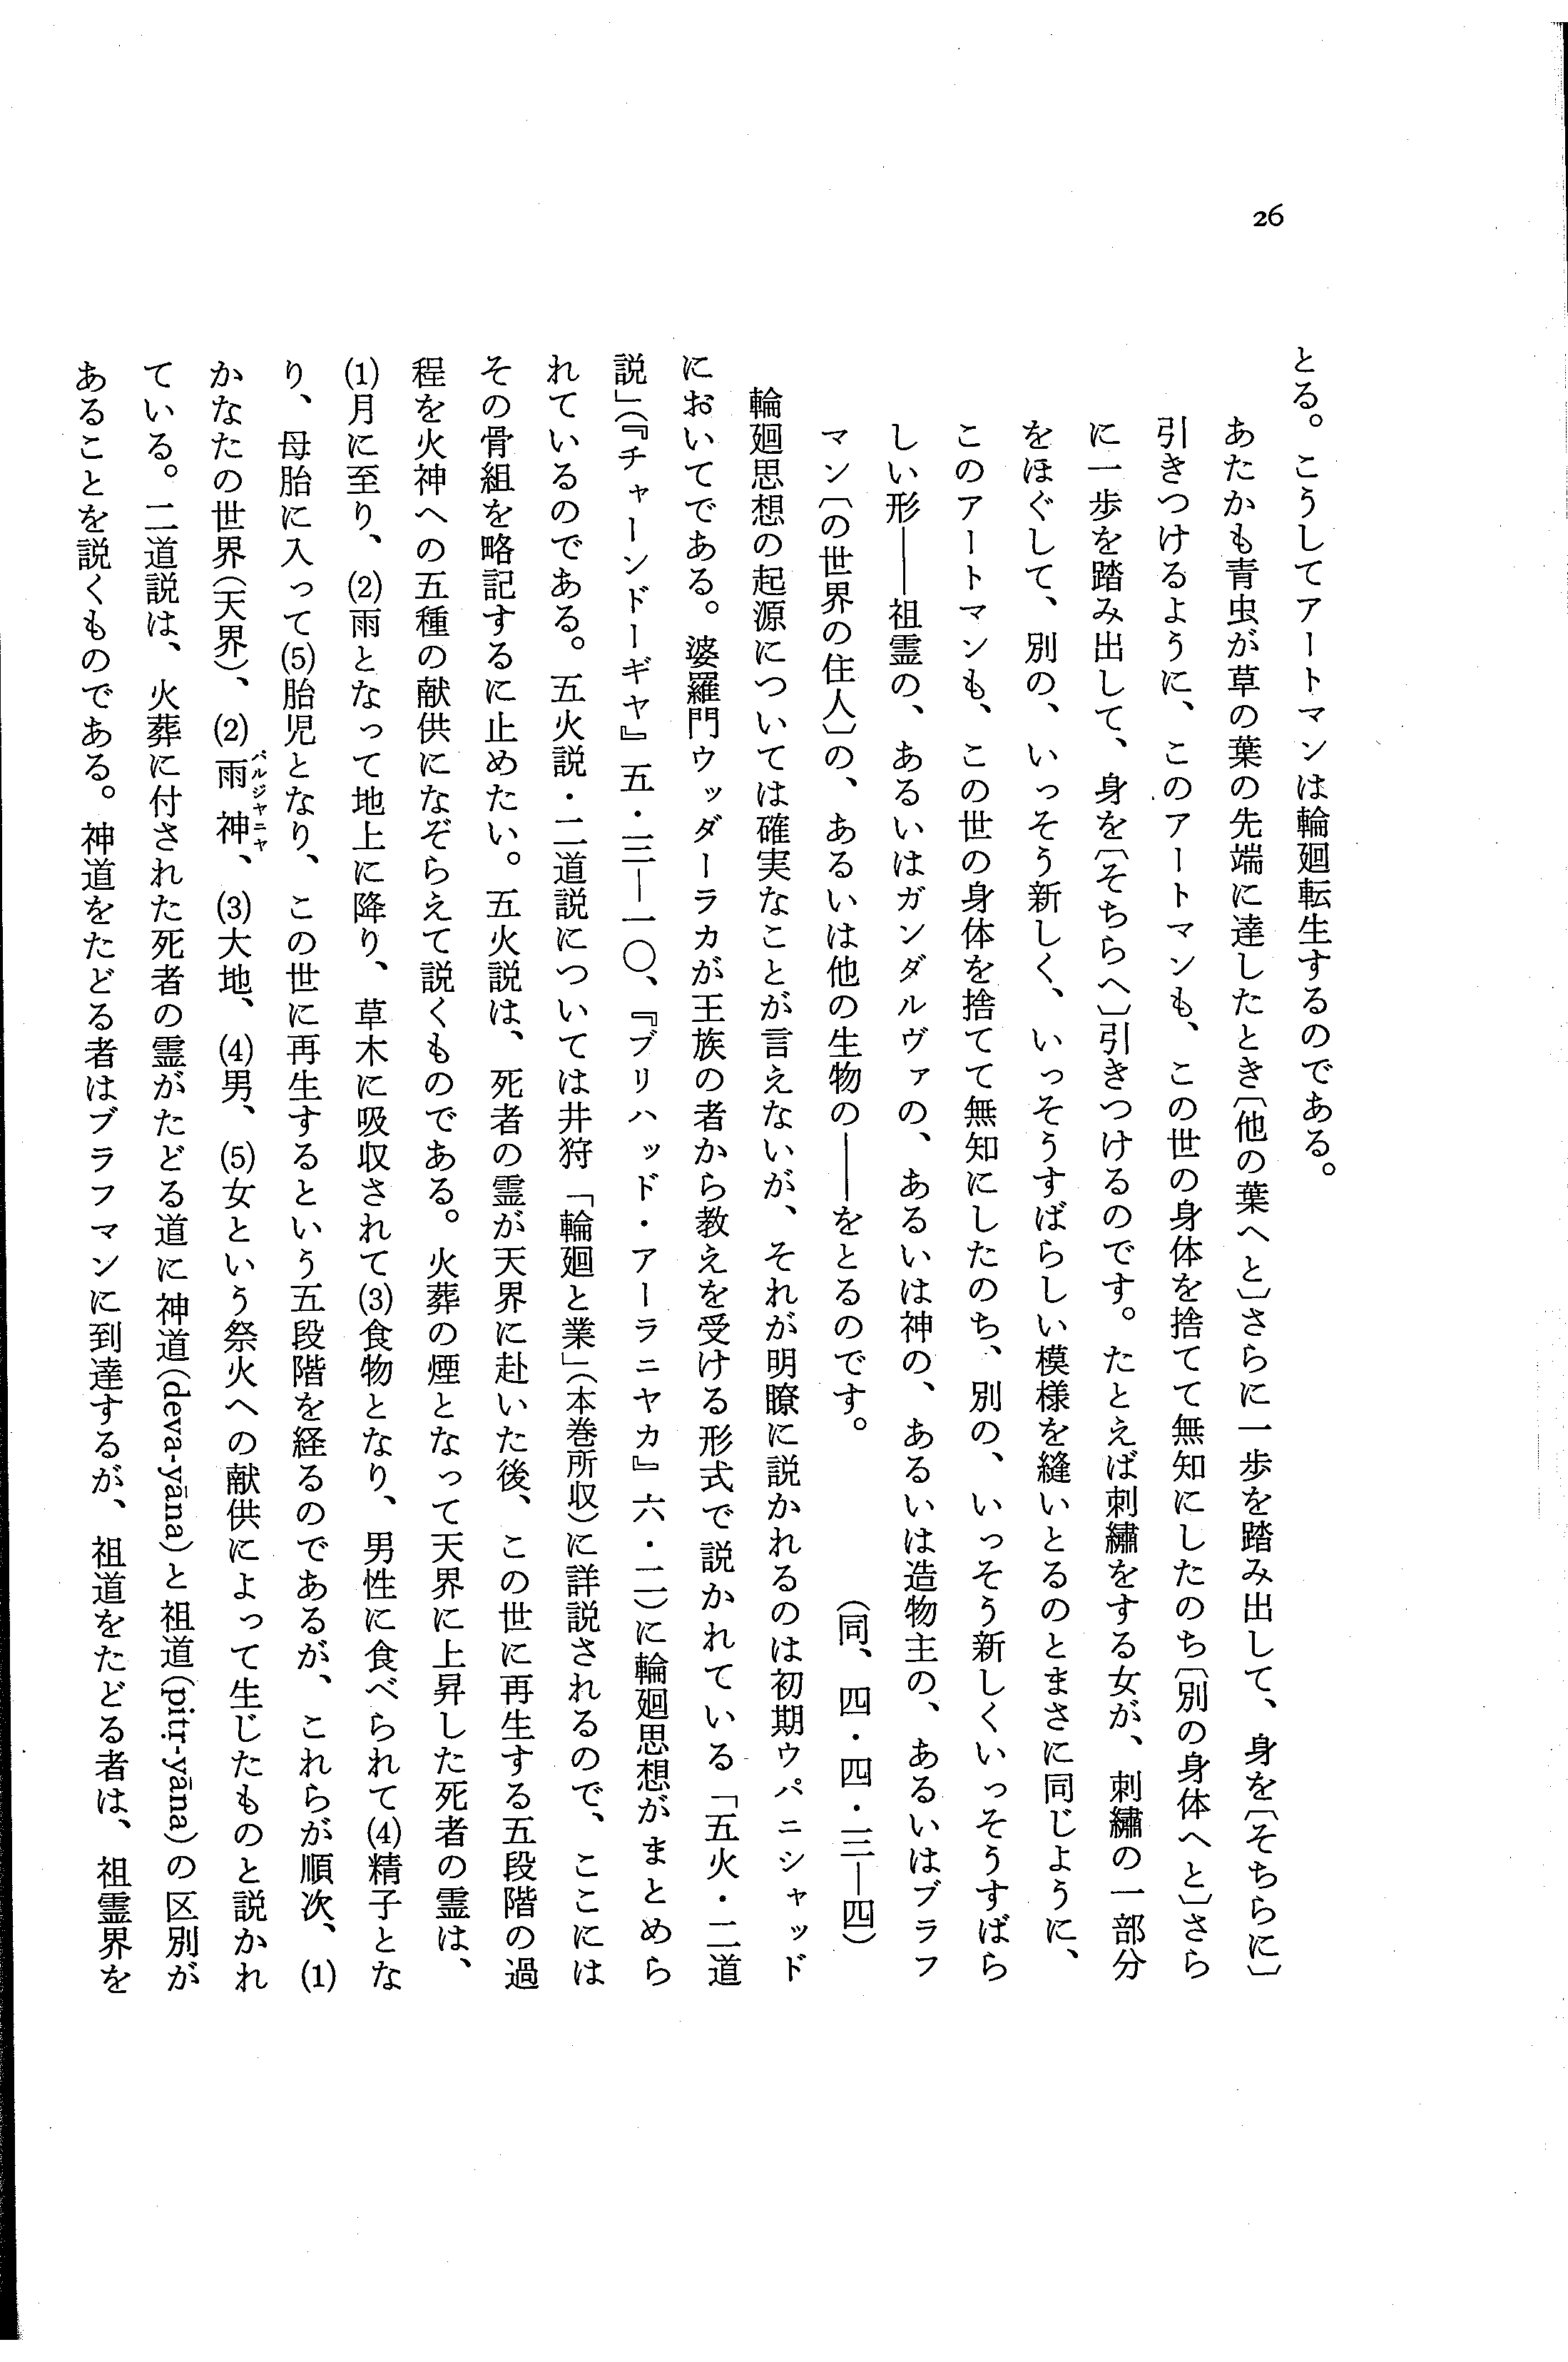 26
とる。こうしてアートマンは輪廻転生するのである。
あたかも青虫が草の葉の先端に達したとき〔他の葉へと〕さらに一歩を踏み出して、身を〔そちらに〕
引きつけるように、このアートマンも、この世の身体を捨てて無知にしたのち〔別の身体へと〕さら
に一歩を踏み出して、身を〔そちらへ〕引きつけるのです。たとえば刺繡をする女が、刺繡の一部分
をほぐして、別の、いっそう新しく、いっそうすばらしい模様を縫いとるのとまさに同じように、
このアートマンも、この世の身体を捨てて無知にしたのち、別の、いっそう新しくいっそうすばら
しい形――祖霊の、あるいはガンダルヴァの、あるいは神の、あるいは造物主の、あるいはブラフ
マン〔の世界の住人〕の、あるいは他の生物の――をとるのです。（同、四・四・三―四）
輪廻思想の起源については確実なことが言えないが、それが明瞭に説かれるのは初期ウパニシャッド
においてである。婆羅門ウッダーラカが王族の者から教えを受ける形式で説かれている「五火・二道
説」（『チャーンドーギヤ』五・三―一〇、『ブリハッド・アーラニヤカ』六・二）に輪廻思想がまとめら
れているのである。五火説・二道説については井狩「輪廻と業」（本巻所収）に詳説されるので、ここには
その骨組を略記するに止めたい。五火説は、死者の霊が天界に赴いた後、この世に再生する五段階の過
程を火神への五種の献供になぞらえて説くものである。火葬の煙となって天界に上昇した死者の霊は、
(1)月に至り、(2)雨となって地上に降り、草木に吸収されて(3)食物となり、男性に食べられて(4)精子とな
り、母胎に入って(5)胎児となり、この世に再生するという五段階を経るのであるが、これらが順次、(1)
かなたの世界（天界）、(2)雨神パルジャニヤ、(3)大地、(4)男、(5)女という祭火への献供によって生じたものと説かれ
ている。二道説は、火葬に付された死者の霊がたどる道に神道（deva-yāna）と祖道（pitṛ-yāna）の区別が
あることを説くものである。神道をたどる者はブラフマンに到達するが、祖道をたどる者は、祖霊界を